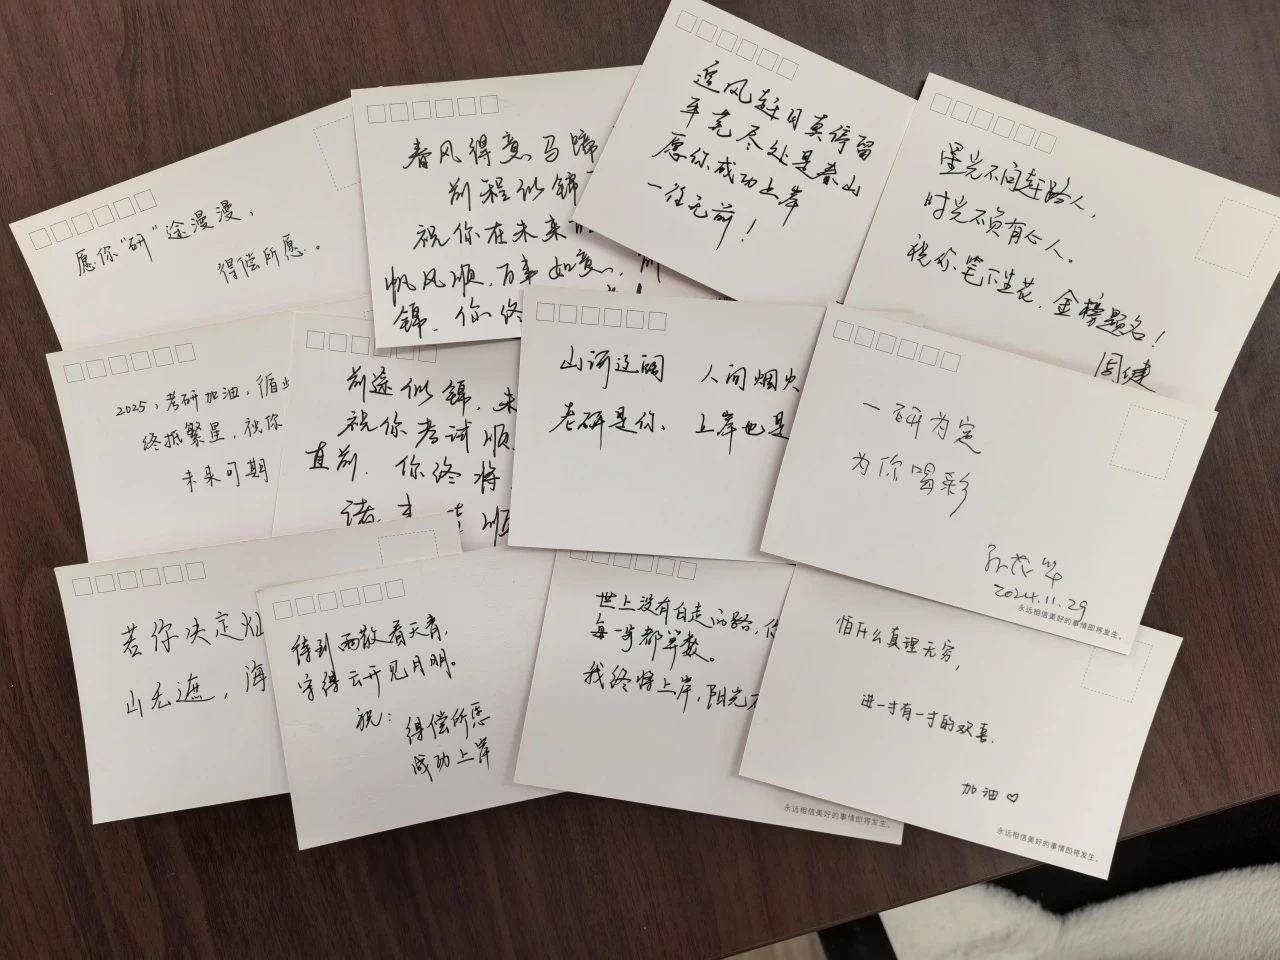 愿你“研”途漫漫，
得偿所愿。
春风得意马蹄
前程似锦
祝你在未来
帆风顺，百事如意，前
锦，你终
追风赶月莫停留
平芜尽处是春山
愿你成功上岸
一往无前！
星光不问赶路人，
时光不负有心人。
祝你笔下生花，金榜题名！
周健
2025，考研加油，循
终抵繁星，祝你
未来可期
前途似锦，未
祝你考试顺
直前，你终将
诸
顺
山河辽阔 人间烟火
考研是你、 上岸也是
一研为定
为你喝彩
2024.11.29
永远相信美好的事情即将发生。
若你决定灿
山无遮，海
待到雨散看天青，
守得云开见月明。
祝：
得偿所愿
成功上岸
世上没有白走的路，你
每一步都算数。
我终将上岸，阳光
永远相信美好的事情即将发生。
怕什么真理无穷，
进一寸有一寸的欢喜.
加油♡
永远相信美好的事情即将发生。